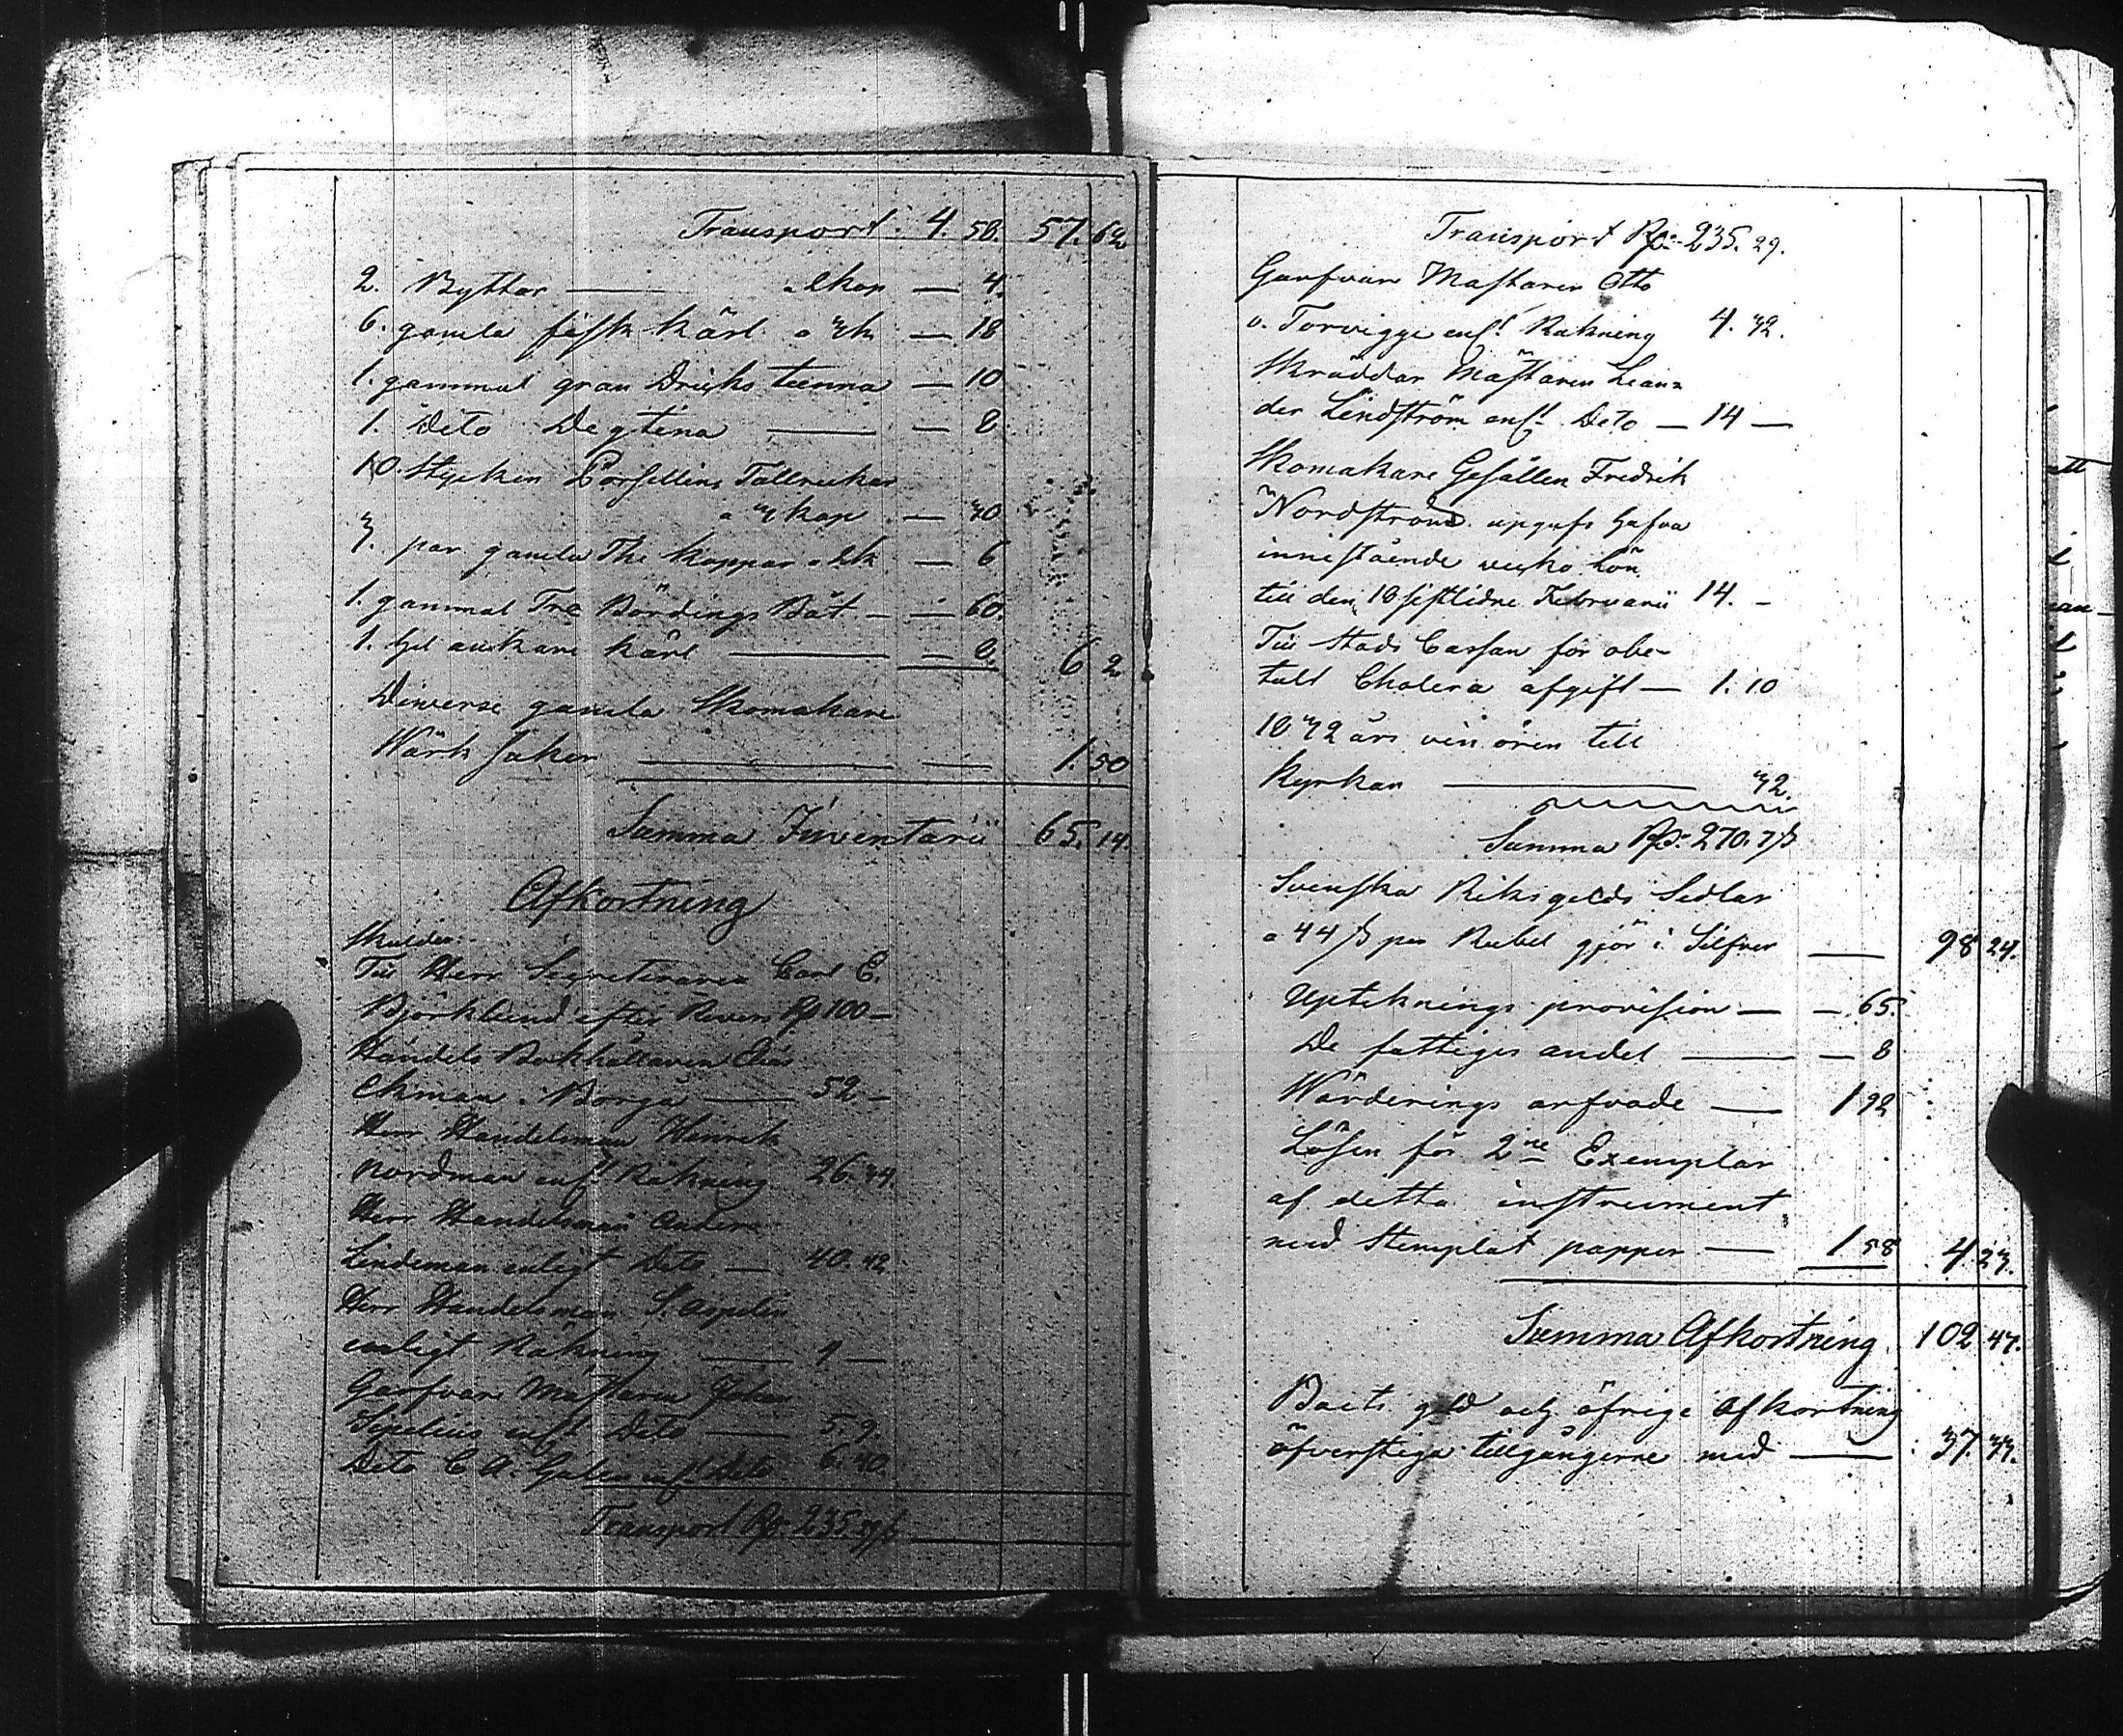 Transport. 4. 50. 57. 62
2. Byttor — a 2 kop — 4.
6. gamla fisk kärl a 3 k — 18
1. gammal gran Dricks tunna — 10
1. Dito Degtina — — 8
10. stycken Porsellins Tallrickar
a 3 kop — 30
3. par gamla The koppar a 2 k — 6
1. gammal Tre Bördings Båt — — 60.
1. ankare kärl — — 8. 6 2
Diverse gamla Skomakare
Wärk saker — — 1. 50
Summa Inventarii 65. 14.
Afkortning
Skulder:
Till Herr Secreteraren Carl E.
Björklund efter Revers Rp 100 —
Handels Bokhållaren Elias
Ekman i Borgå — 52 —
Herr Handelsman Henrik
Nordman enl. Räkning 26. 34.
Herr Handelsman Anders
Lindeman enligt Dito — 40. 42.
Herr Handelsman S. Aspelin
enligt Räkning — 4 —
Garfvare Mästaren Johan
Sipelius enl. Dito — 5. 9.
Dito C. A. enl. Dito 6. 40.
Transport Rp. 235. 29 ß
Transport Rp: 235. 29.
Garfvare Mästaren Otto
v. Torwigge enl. Räkning 4. 32.
Skräddar Mästaren Lean=
der Lindström enl. Dito — 14 —
Skomakare Gesällen Fredrik
Nordström upgifs hafva
innestående veckо Lön
till den 18 sistlidne Februarii 14. —
Till Stads Cassan för obe-
tald Cholera afgift — 1. 10
1832 års ören till
kyrkan — 32.
Summa Rp: 270. 7 ß
Svenska Riksgälds Sedlar
a 44 ß per Rubel gjör i Silfver — 98 24.
Upteknings provision — — 65.
De fattiges andel — — 8
Wärderings arfvode — 1 92
Lösen för 2ne Exemplar
af detta instrument
med Stemplat papper — 1 58 4. 23.
Summa Afkortning 102 47.
Boets gäld och öfrige afkortning
öfverstiga tillgångerne med — 37. 33.